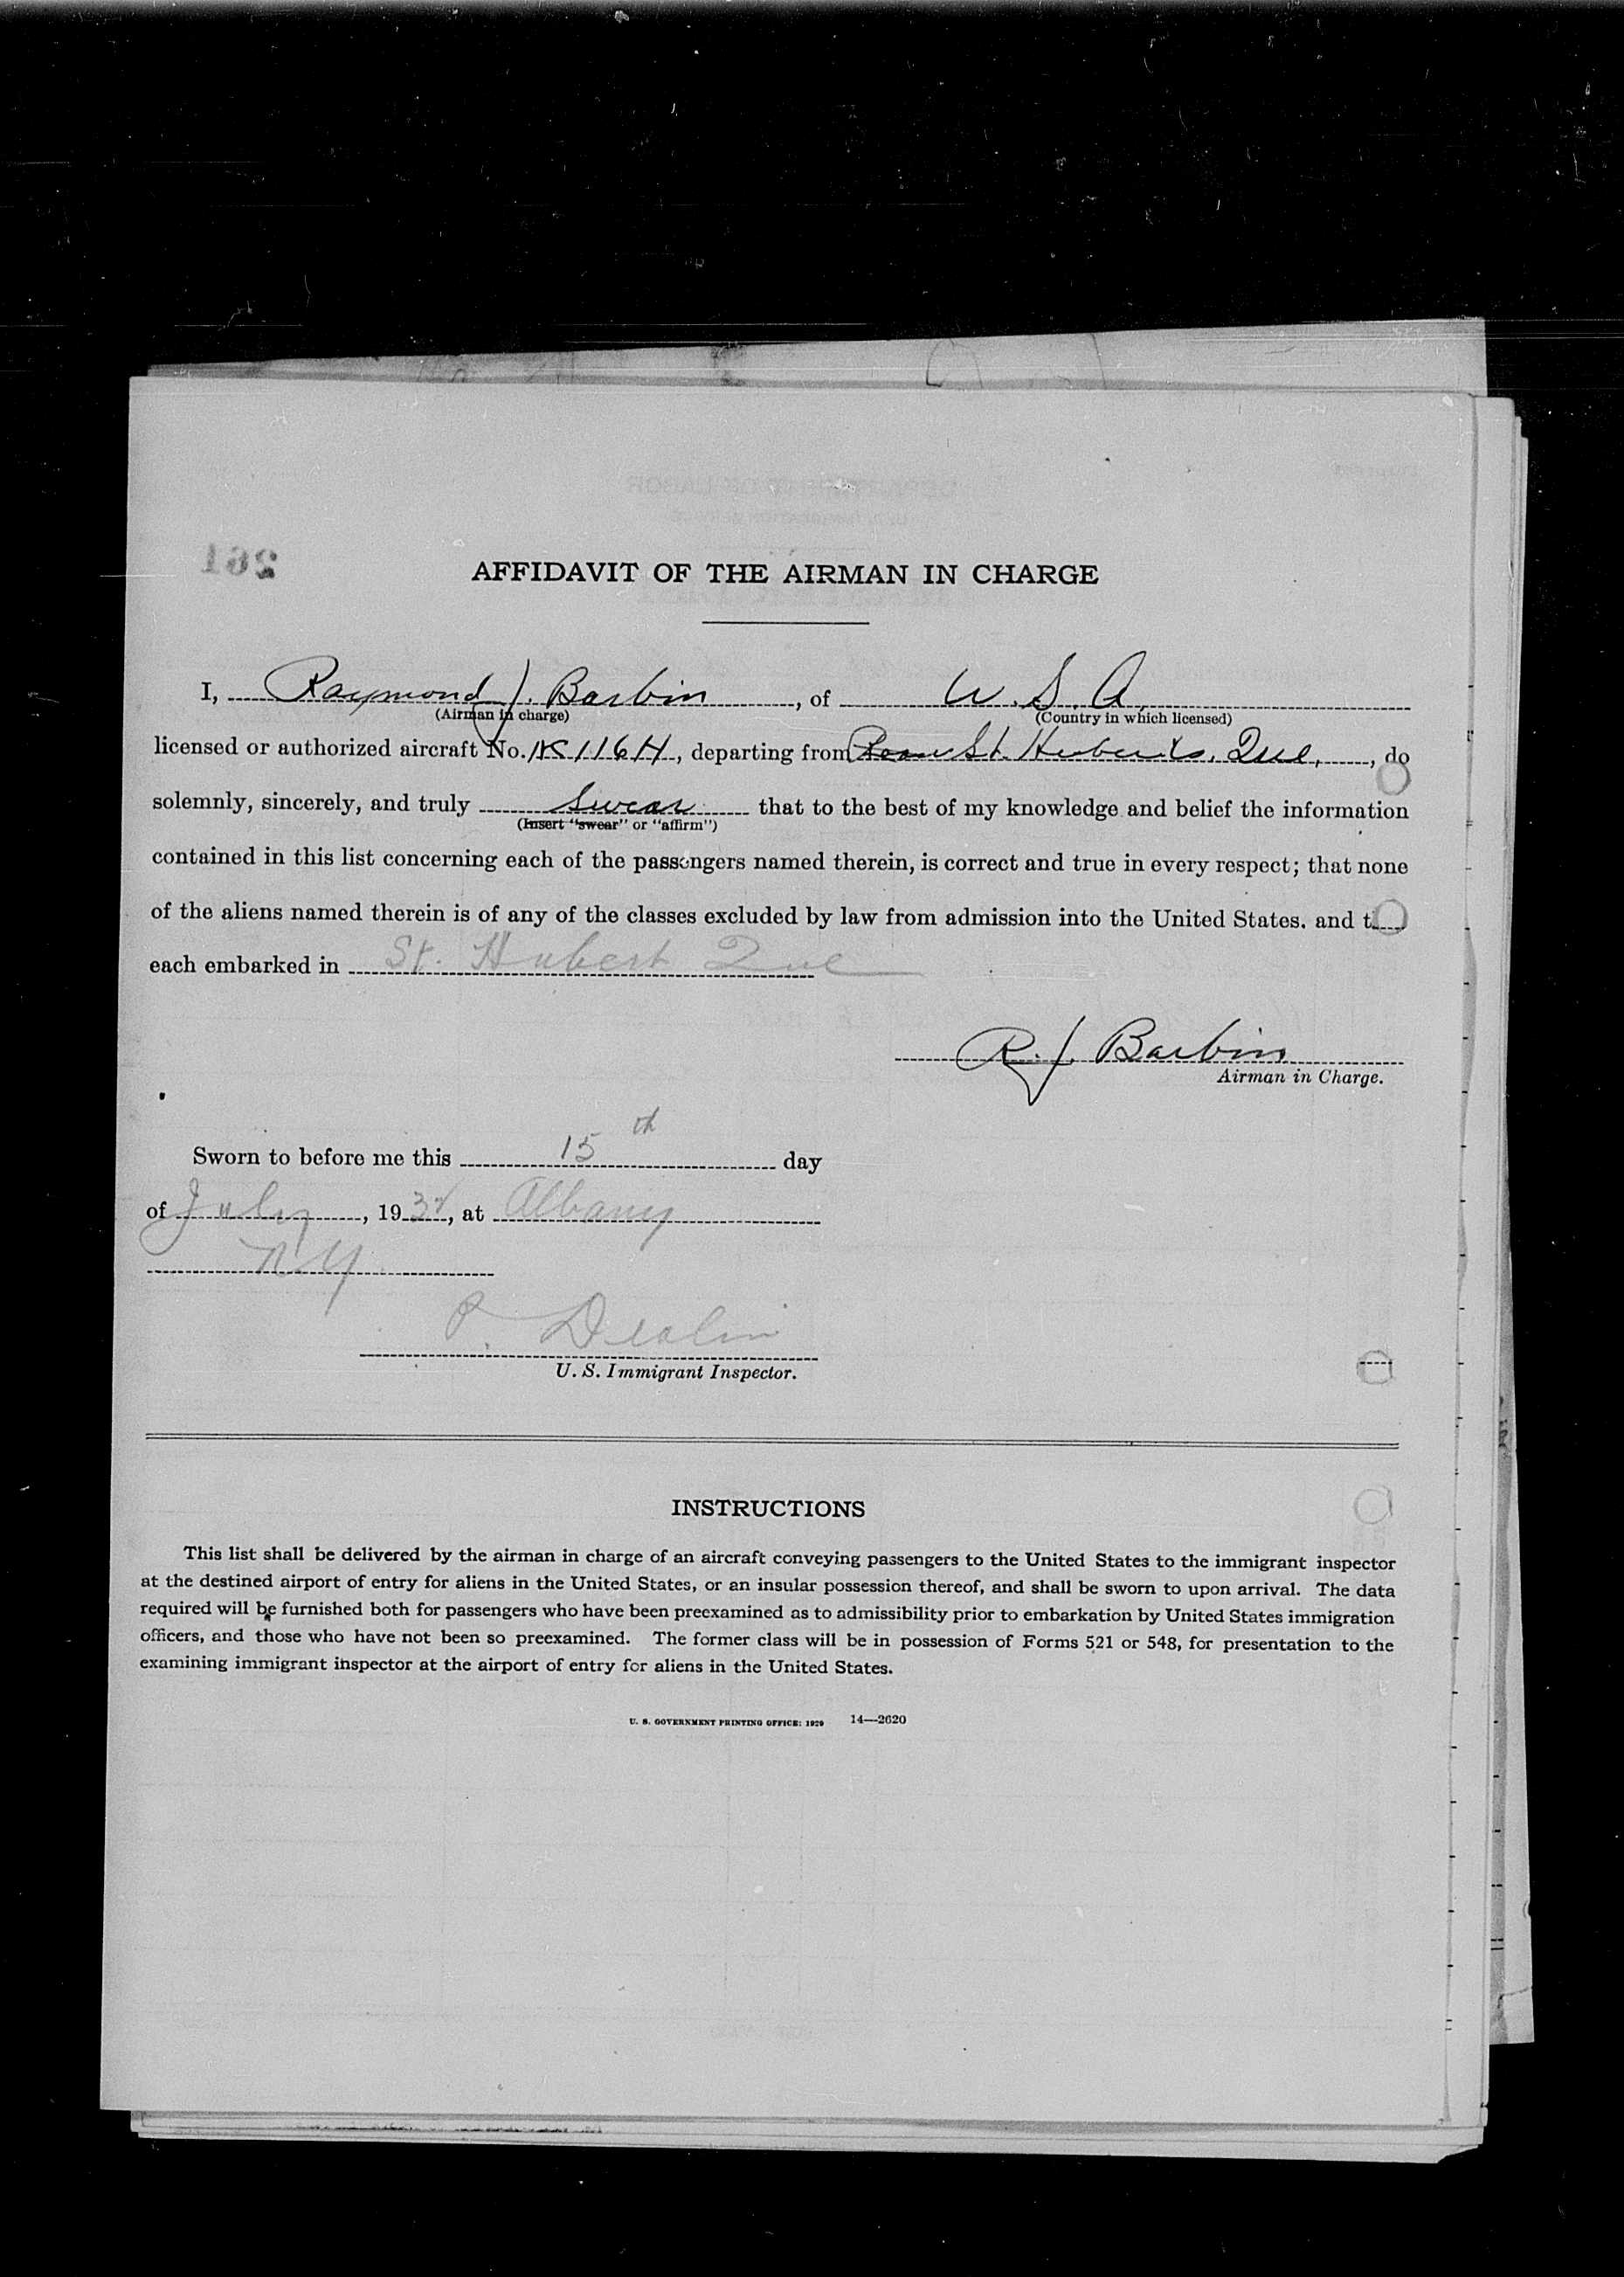 261
AFFIDAVIT OF THE AIRMAN IN CHARGE
I, Raymond J. Barbin, of U.S.A.
(Airman in charge) (Country in which licensed)
licensed or authorized aircraft No. 116H, departing from St. Huberts, Que., do
solemnly, sincerely, and truly swear that to the best of my knowledge and belief the information
(Insert "swear" or "affirm")
contained in this list concerning each of the passengers named therein, is correct and true in every respect; that none
of the aliens named therein is of any of the classes excluded by law from admission into the United States, and t
each embarked in St. Hubert Que
R. J. Barbin
Airman in Charge.
Sworn to before me this 15th day
of July, 193, at Albany
NY
P.
U. S. Immigrant Inspector.
INSTRUCTIONS
This list shall be delivered by the airman in charge of an aircraft conveying passengers to the United States to the immigrant inspector
at the destined airport of entry for aliens in the United States, or an insular possession thereof, and shall be sworn to upon arrival. The data
required will be furnished both for passengers who have been preexamined as to admissibility prior to embarkation by United States immigration
officers, and those who have not been so preexamined. The former class will be in possession of Forms 521 or 548, for presentation to the
examining immigrant inspector at the airport of entry for aliens in the United States.
U. S. GOVERNMENT PRINTING OFFICE: 1929 14—2620